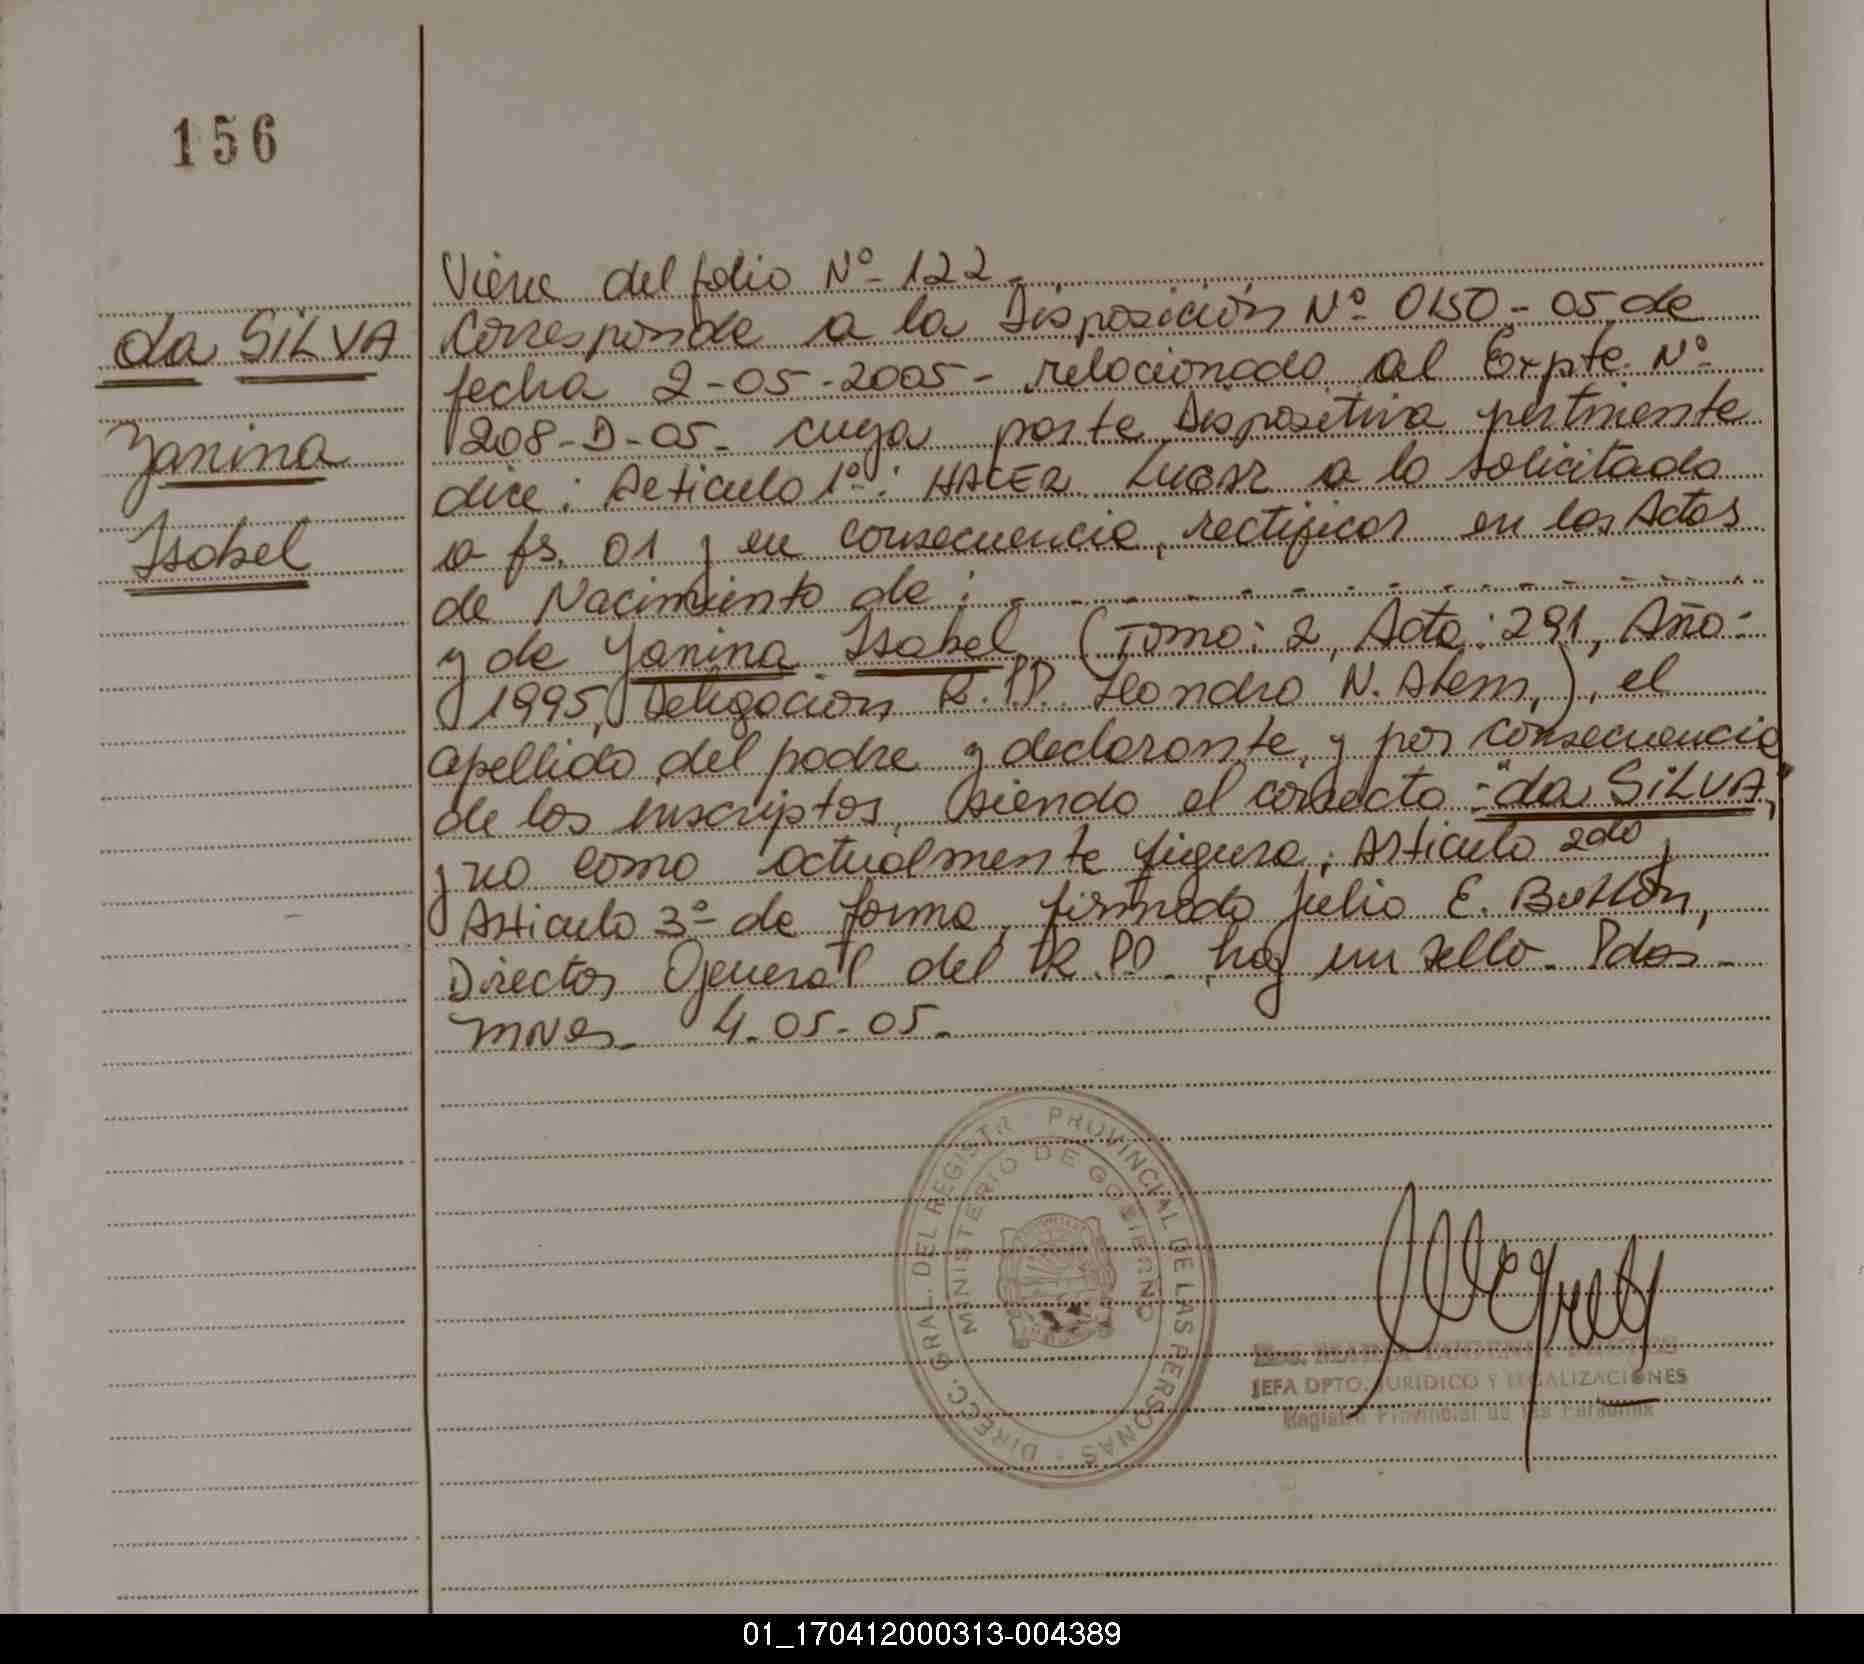 156
da SILVA
Yanina
Isabel
Viene del folio Nº- 122 -
Corresponde a la Disposición Nº- 0150 - 05 de
fecha 2-05-2005 - relacionado al Expte. Nº-
208-D-05- cuya parte Dispositiva pertinente
dice: Articulo 1º-: HACER LUGAR a lo solicitado
a fs. 01 y en consecuencia, rectificar en las Actas
de Nacimiento de: - - - - - - - - - - - - -
y de Yanina Isabel (Tomo: 2, Acta: 291, Año-
1995, Delegación R.PP. Leandro N. Alem,), el
apellido del padre y declarante, y por consecuencia
de los inscriptos, siendo el correcto -: "da SILVA,"
y no como actualmente figura; Articulo 2do y
Articulo 3º- de forma, firmado Julio E.
Director General del R.PP. hay un sello - Pdas -
4-05-05-
DIRECC. GRAL. DEL REGISTR PROVINCIAL DE LAS PERSONAS -
MINISTERIO DE GOBIERNO
MARIA EUGENIA
JEFA DPTO. JURIDICO Y LEGALIZACIONES
Registro Provincial de las Personas
01_170412000313-004389